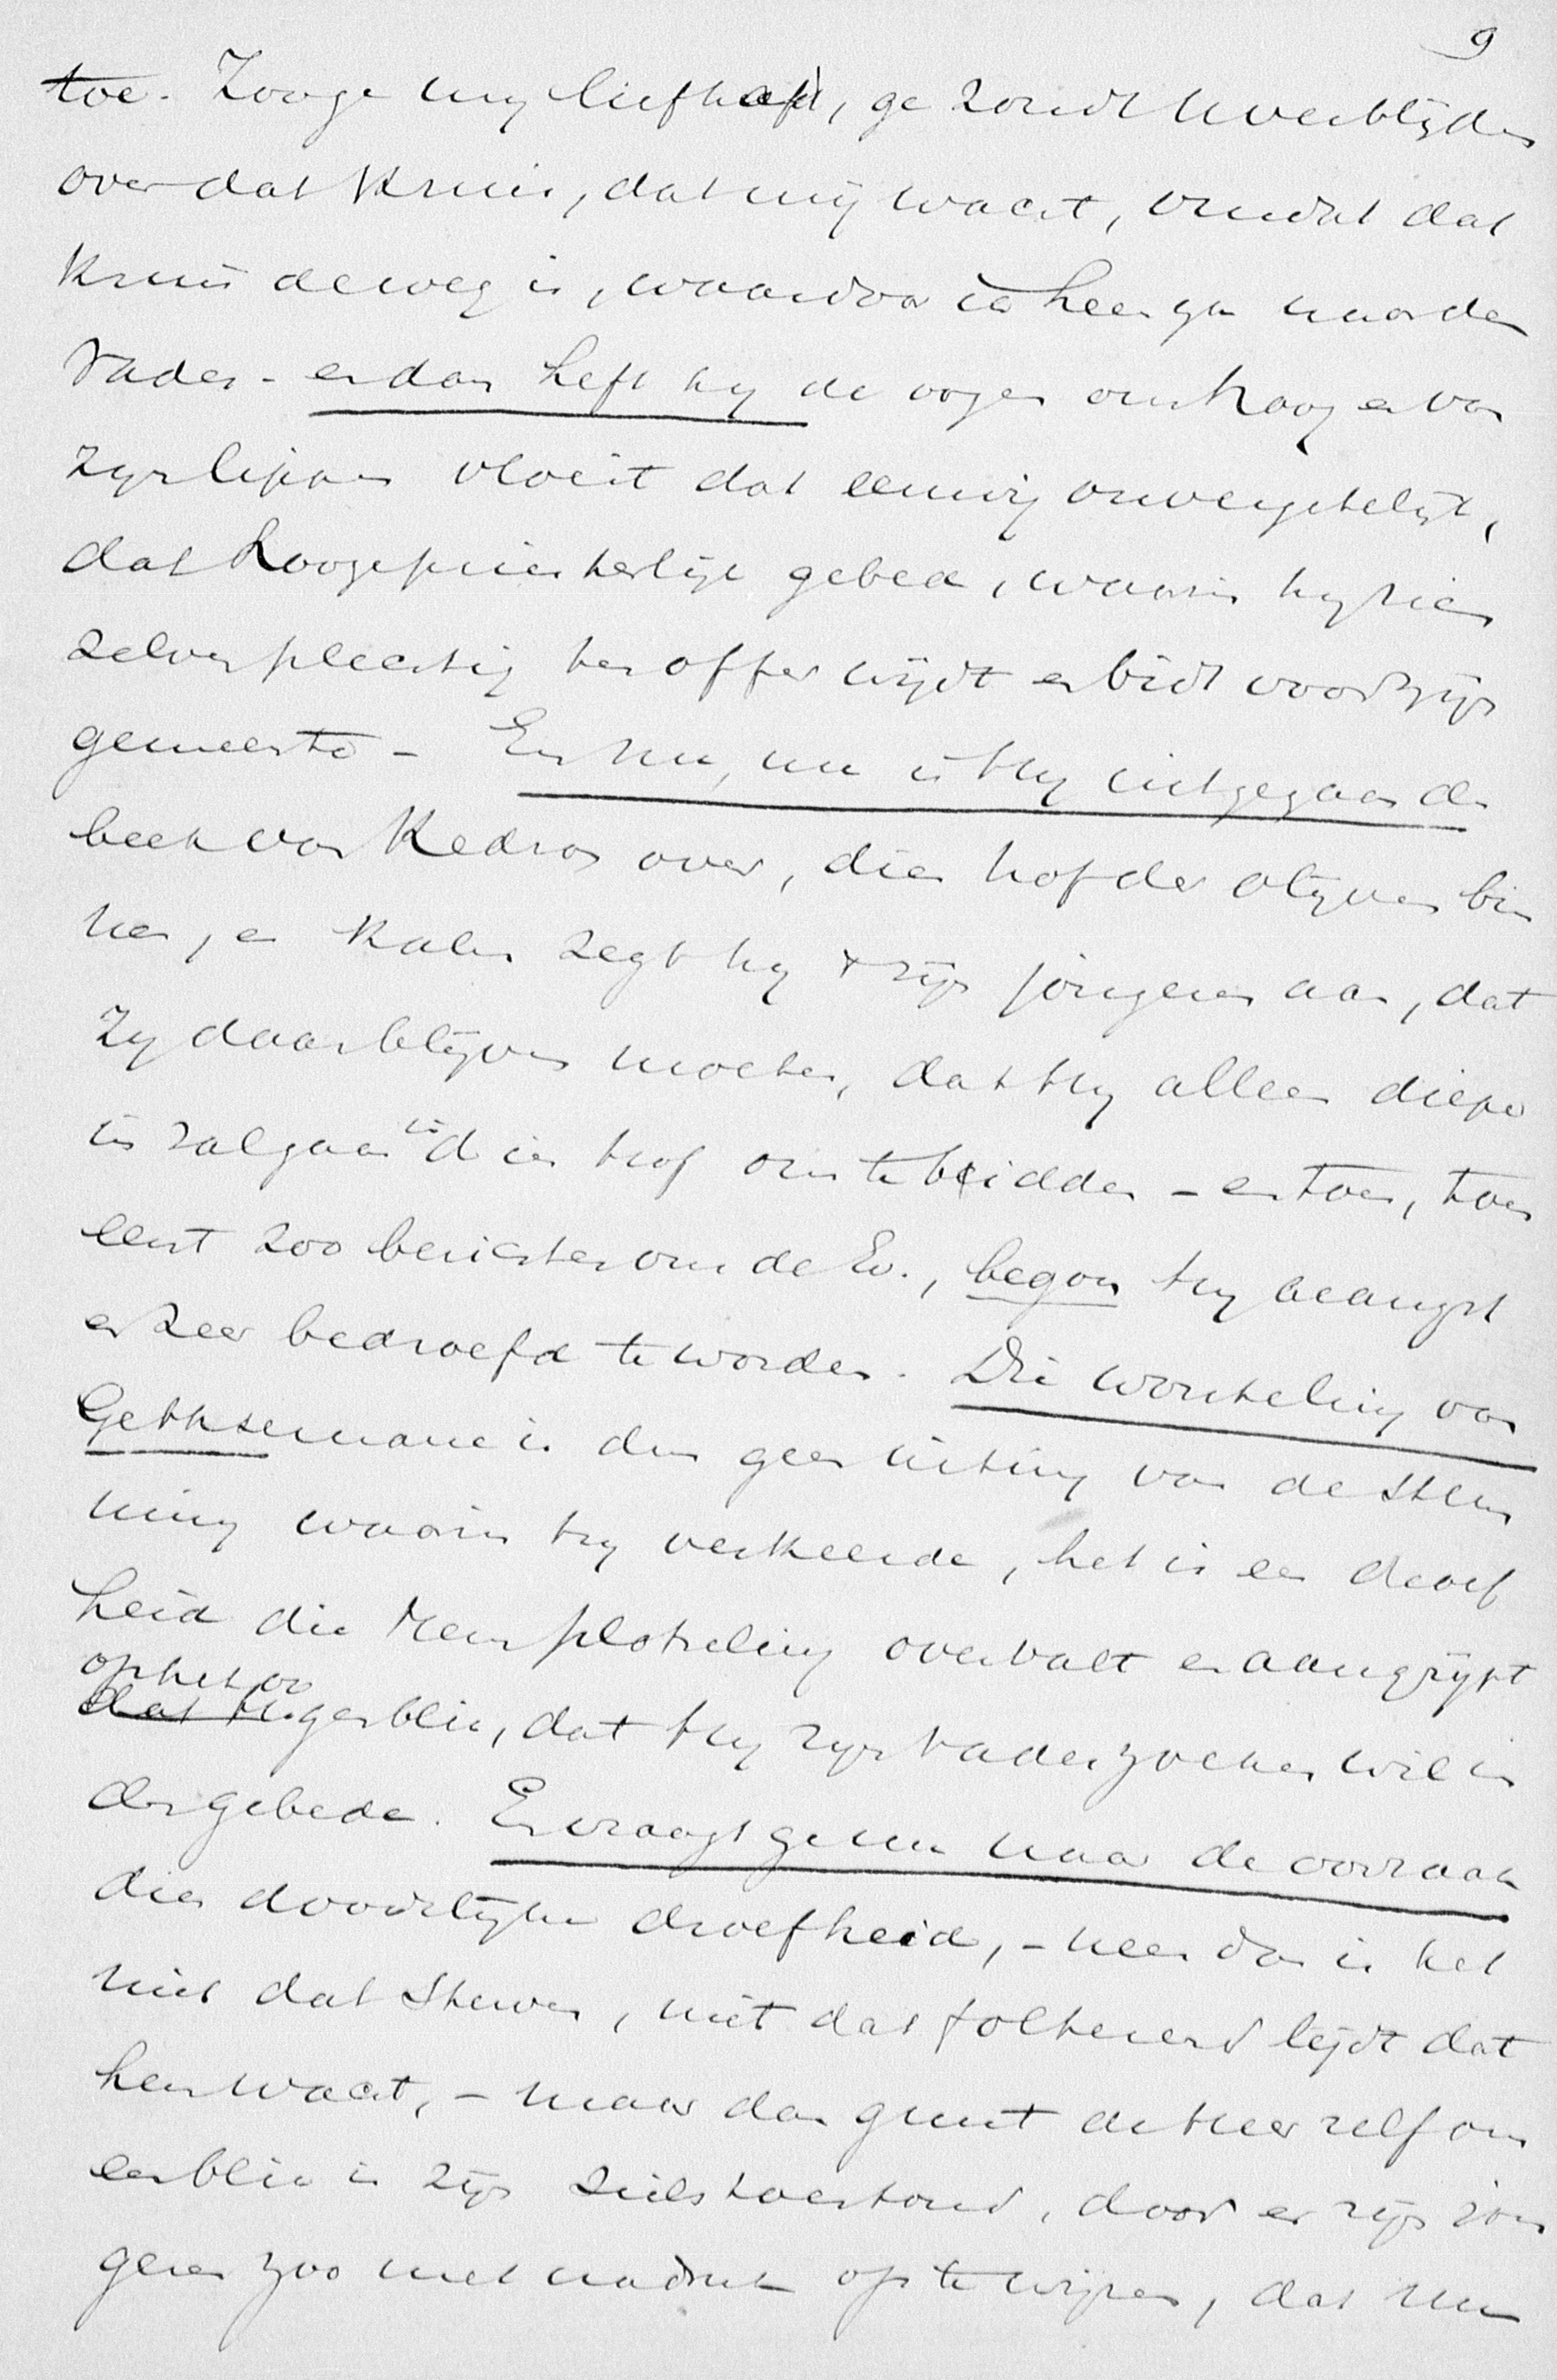 9
toe. Zoo ge mij lief hadt, ge zoudt U verblijden
over dat kruis, dat mij wacht, omdat dat
kruis de weg is, waardoor ik heen ga naar den
Vader - en dan heft hij de oogen omhoog en van
zijn lippen vloeit dat eeuwig onvergetelijk,
dat hoogepriesterlijk gebed, waarin hij zich
zelven plechtig ten offer wijdt en bidt voor zijn
gemeente - En nu, nu is Hij uitgegaan de
beek van Kedron over, dien hof der olijven bin
nen, en kalm zegt hij zijn jongeren aan, dat
zij daar blijven moeten, dat Hij alleen dieper
in zal gaan in dien hof om te bidden - en toen, toen
eerst zoo berichten ons de Ev., begon Hij beangst
en zeer bedroefd te worden. Die worsteling van
Gethsemane is dus geen uiting van de stem
ming waarin Hij verkeerde, het is een droef
heid die Hem plotseling overvalt en aangrijpt
op het oogenblik, dat Hij zijn Vader zoeken wil in
den gebede. En vraagt ge nu naar de oorzaak
dien doodelijke droefheid, - neen dan is het
niet dat sterven, niet dat folterend lijdt dat
hem wacht, - maar dan gunt de Heer zelf ons
een blik in zijn zielstoestand, door er zijn jon
geren zoo met nadruk op te wijzen, dat nu